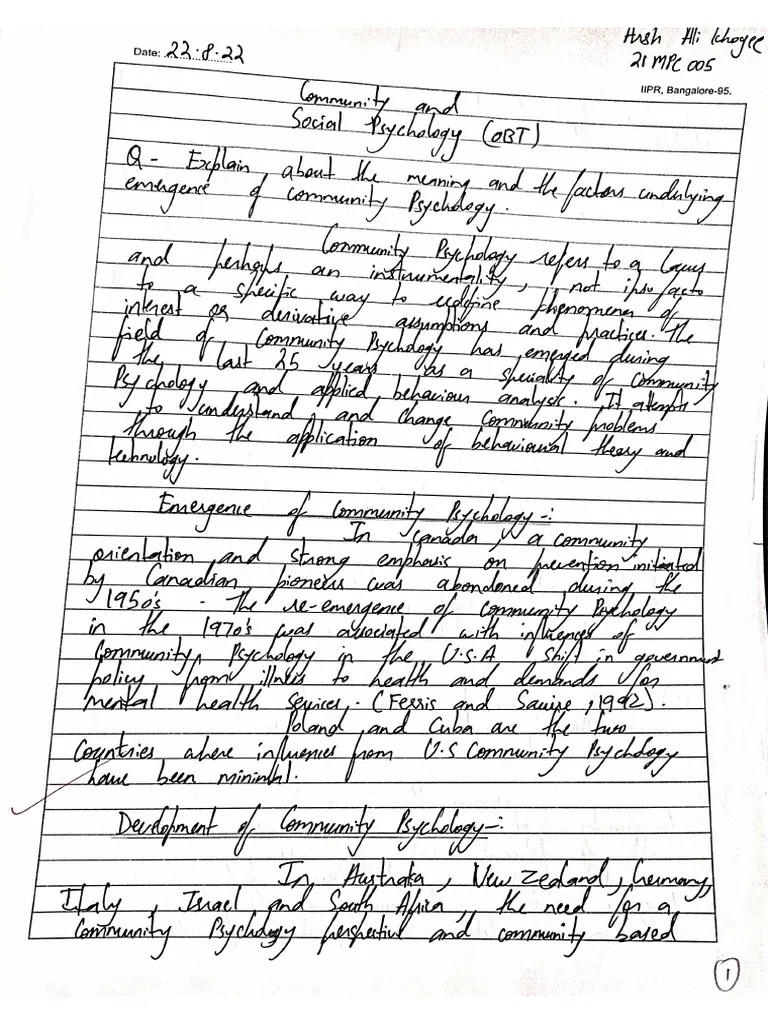 Arsh Ali Khogee
Date: 22.8.22
21 MPC 005
IIPR, Bangalore-95.
Community and
Social Psychology (OBT)
Q - Explain about the meaning and the factors underlying
emergence of community Psychology.
Community Psychology refers to a locus
and perhaps an instrumentality, not ipso facto
to a specific way to redefine phenomena of
interest or derivative assumptions and practices. The
field of Community Psychology has emerged during
the last 25 years as a speciality of community
Psychology and applied behaviour analysis. It attempts
to understand and change community problems
through the application of behavioural theory and
technology.
Emergence of Community Psychology-:
In Canada, a community
orientation and strong emphasis on prevention initiated
by Canadian pioneers was abandoned during the
1950's - The re-emergence of community Psychology
in the 1970's was associated with influences of
Community Psychology in the U.S.A shift in government
policy from illness to health and demands for
mental health services. (Ferris and Squire, 1992).
Poland and Cuba are the two
Countries where influences from U.S Community Psychology
have been minimal.
Development of Community Psychology-:
In Australia, New Zealand, Germany,
Italy, Israel and South Africa, the need for a
Community Psychology perspective and community based
1